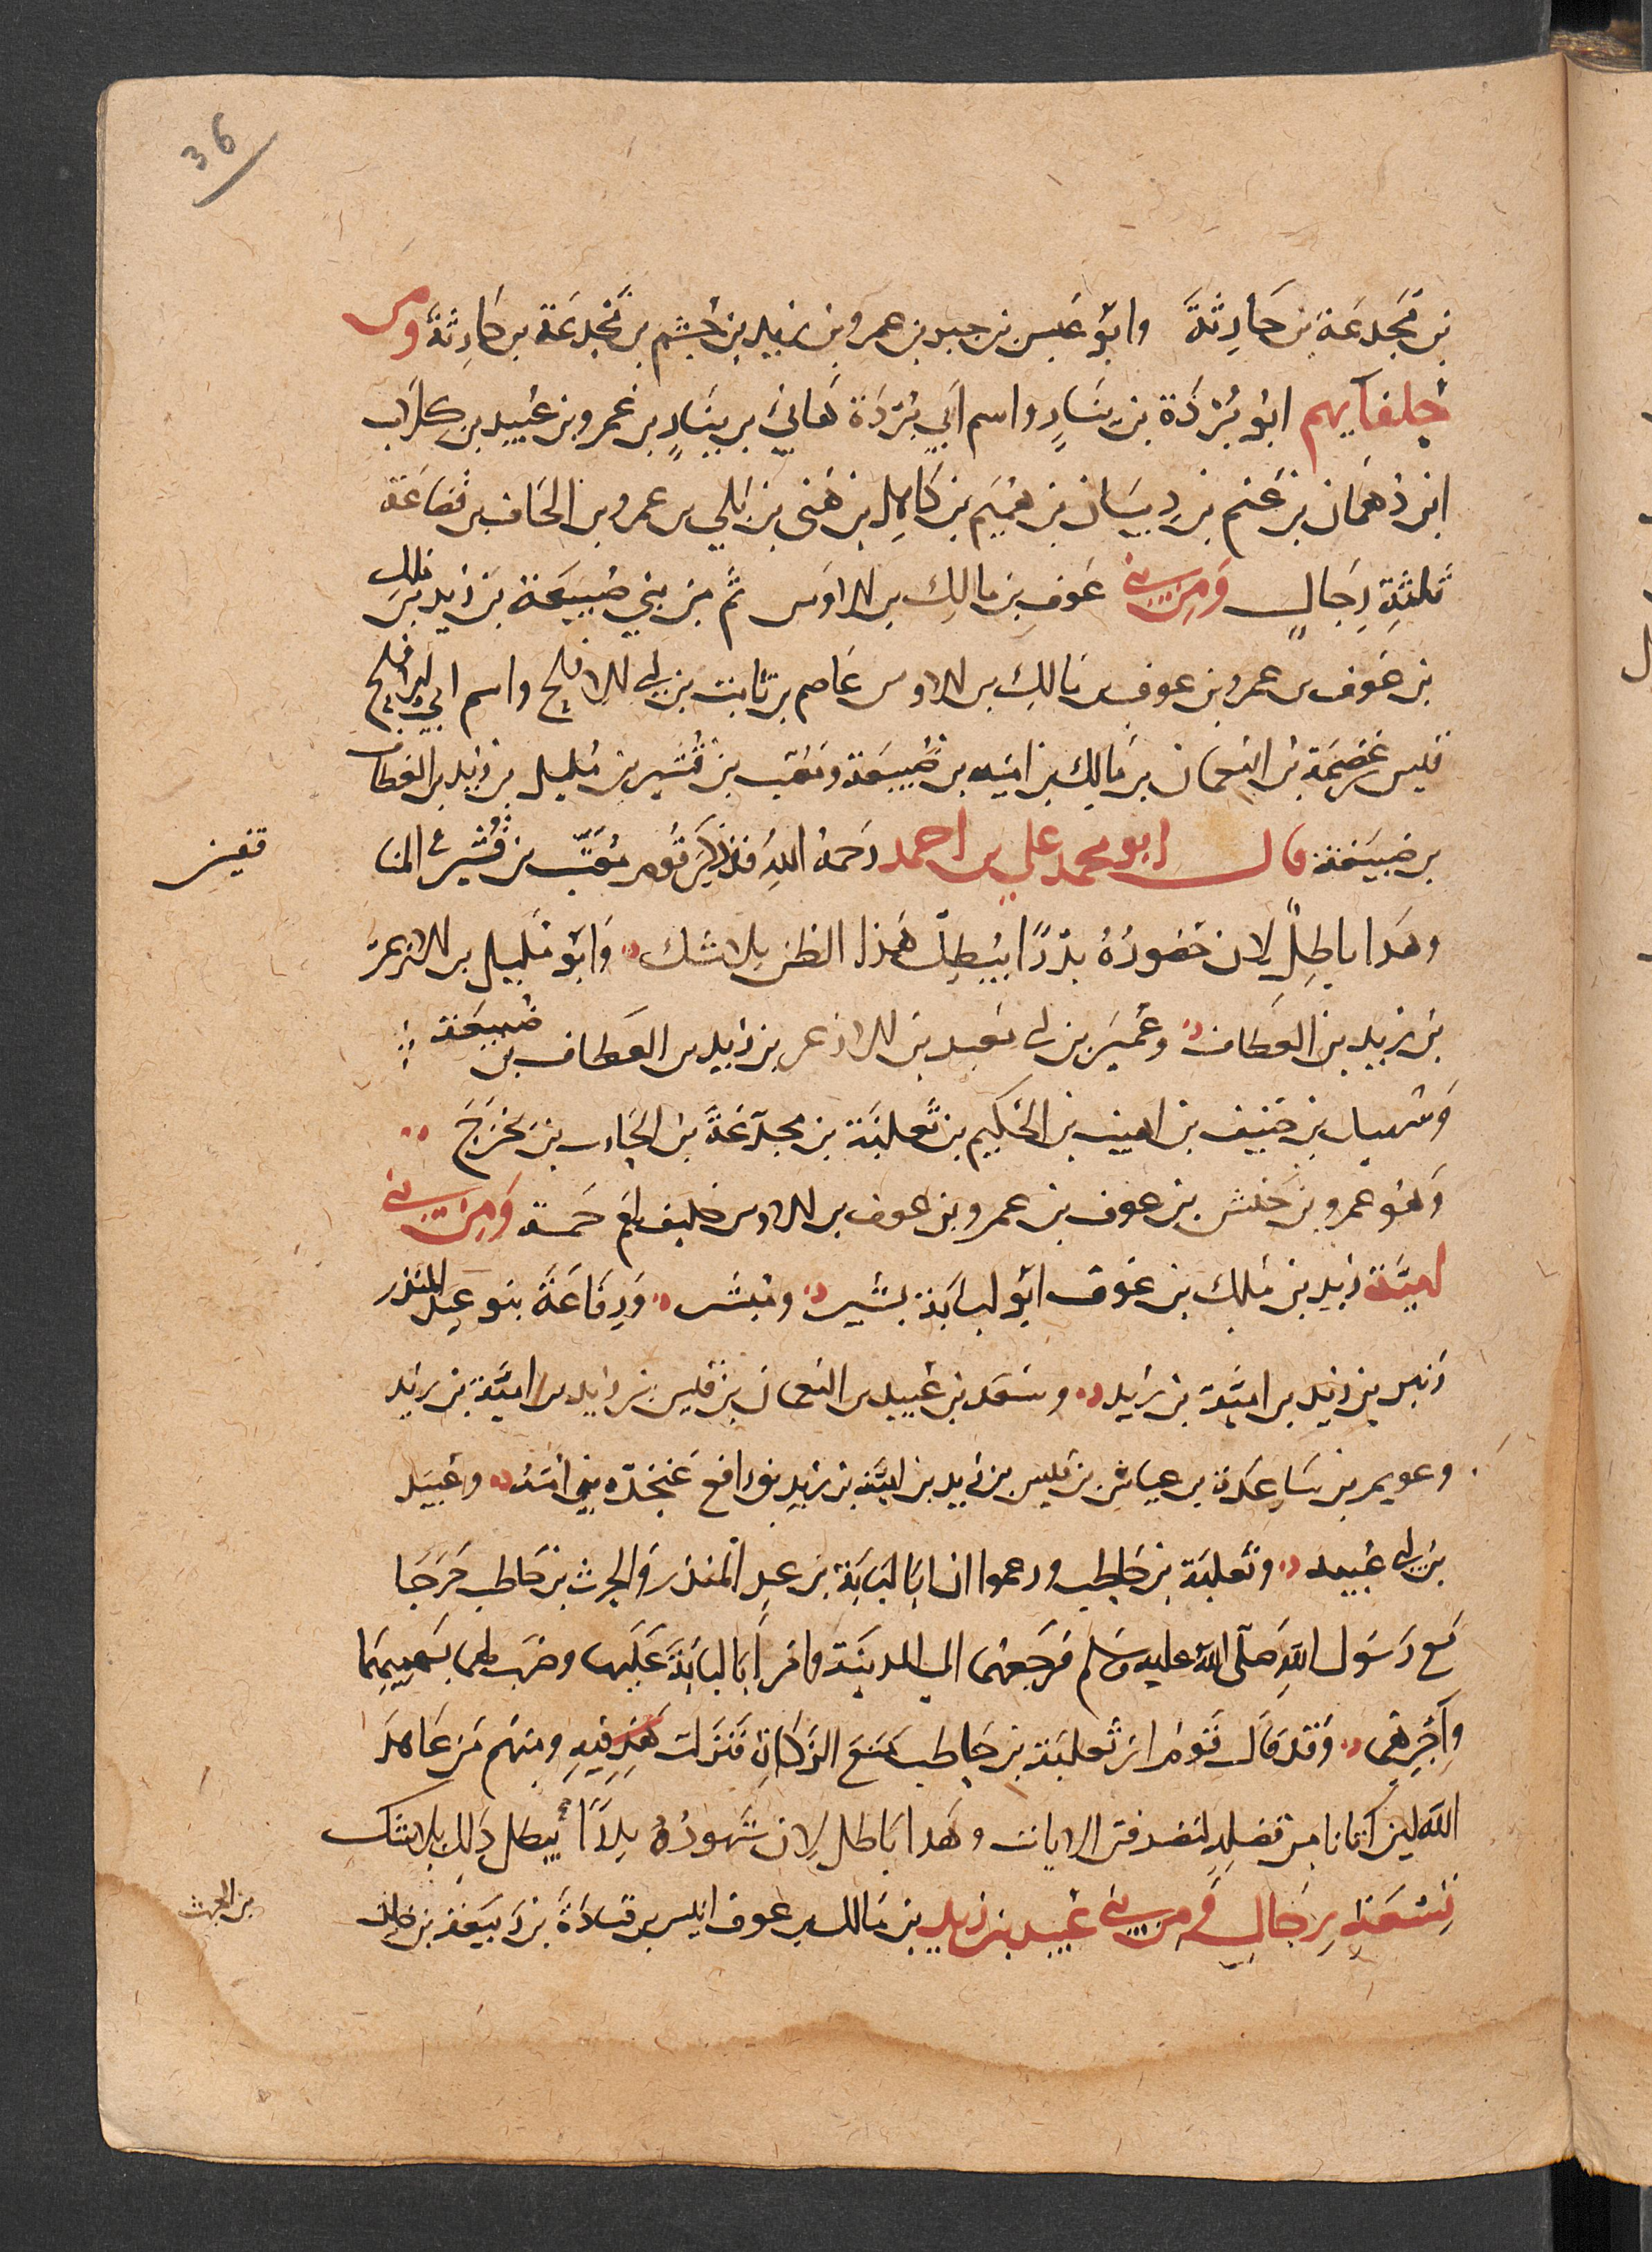 36
بن مَجدَعَة بن حَارِثَةَ وابُو عَبس بن جبر بن عمرو بن زيد بن جُشَم بن مَجْدَعَة بن حَارِثَةَ ومن
حلفآيهم ابُو بُرْدَة بن نيَارٍ واسم اَبي بُرْدَة هَانئ بن نيَارٍ بن عَمرو بن عُبيد بن كلاب
ابن دُهمَان بن غَنم بن ذِبيَان بن هُمَيم بن كَامِل بن هَنى بن بَلي بن عمرو بن الحَاف بن قضَاعَة
ثَلثةِ رِجَالٍ وَمِن بني عَوفِ بن مَالِك بن الاوَس ثُم من بني ضُبَيعَة بن زَيد بن مَالك
بن عَوف بن عمرو بن عوف بن مَالِك بن الاوس عَاصم بن ثَابت بن ابي الاقلح واسم ابي الاقلح
قيس بن عِصْمَة بن النعمان بن مَالِك بن امَيه بن ضُبيعَة ومُعَتب بن قُشَير بن مُليل بن زَيد بن العطاف
بن ضبيَعَة قال ابو محمد علي بن احمد رَحمَهُ اللهُ قَد ذكَر قَوم مُعَتّب بن قُشَير في المنا
فقين
وهَذا باطِلٌ لان حُضورُهُ بدْرًا يُبطِل هَذا الظن بلا شك وَابُو مُليل بن الازعر
بن زيد بن العطاف وعُمَير بن ابي معبد بن الازعر بن زَيد بن العطاف بن ضُبيعَة
وَسَهل بن حُنيف بن اهيب بن الحكيم بن ثَعلبَة بن مجدَعَةَ بن الحَارث بن بخرَجَ
وَهُو عمرو بن حَنَش بن عوف بن عمرو بن عوف بن الاوس حليف لهُم خمسة وَمِن بني
اميَّة زيد بن مَلك بن عَوف ابُو لبابَة بشير ومُبشر وَرِفَاعَةَ بنو عبد المنذر
زَنبر بن زيد بن اميَّة بن زَيد وسَعد بن عُبيد بن النعمان بن قَيس بن زَيد بن اميَّة بن زَيد
وعويم بن سَاعِدة بن عياش بن قَيس بن زَيد بن اميَّة بن زَيد ورافع عَنجَدَه بني امَيَّة وعُبَيد
بن ابي عُبيد وثَعلبَة بن حَاطِب وزعموا ان ابَا لبَابَة بن عبد المنذر وَالحرث بن حَاطب خَرَجَا
مَع رَسُول اللهِ صَلى اللهُ عليه وسَلم فرَجَعهُمَا الي المدينَة وامّر أبَا لبابَةَ عَلَيهَا وضرَب لهما بسَهميهمَا
واَجْرهِمَا وَقد قَال قَومُ ان ثَعلبَة بن حَاطِب مَنَعَ الزكاةَ فَنزلت فِيهِ ومنهم مَن عَاهدَ
الله لين اتَانَا من فضلهِ لنصدقن الايات وهَذا باطل لان شهُودُهُ بدْرًا يُبطل ذلِك بلا شك
تسْعَة رِجَالٍ وَمن بني عُبيد بن زَيد بن مَالك بن عوف انيس بن قتَادةَ بن رَبيعَة بن خالد
بن الحرث